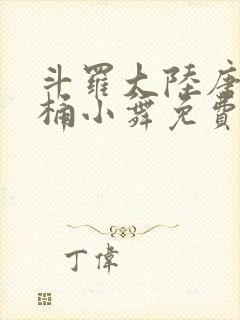 斗羅大陸唐
桶小舞免費
丁偉